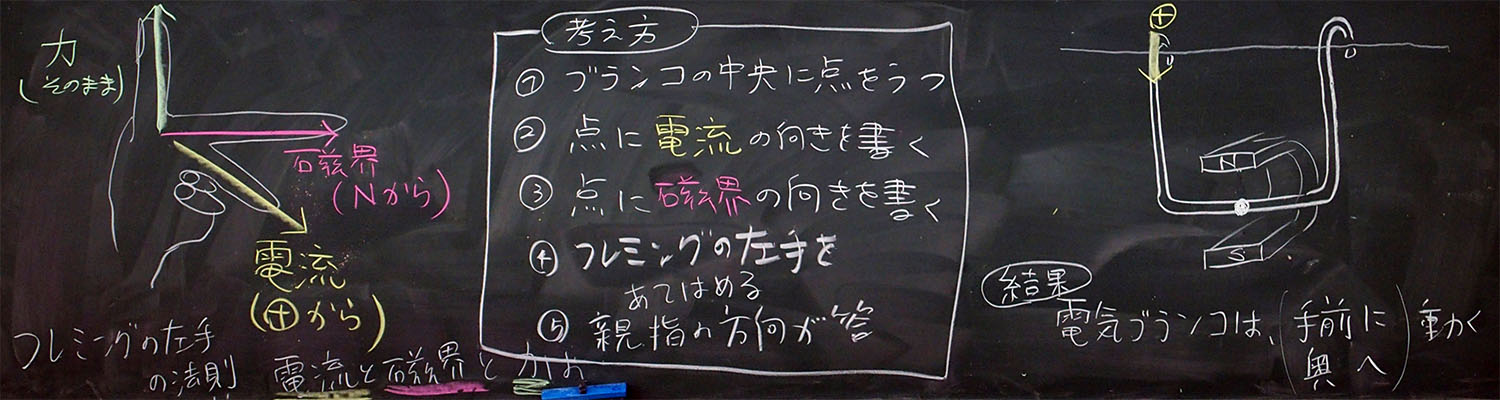 力
(そのまま)
磁界
(Nから)
電流
(⊕から)
フレミングの左手
の法則
電流と磁界と力お
考え方
① ブランコの中央に点をうつ
② 点に電流の向きを書く
③ 点に磁界の向きを書く
④ フレミングの左手を
あてはめる
⑤ 親指の方向が答
⊕
N
S
結果
電気ブランコは、(手前に
奥へ) 動く